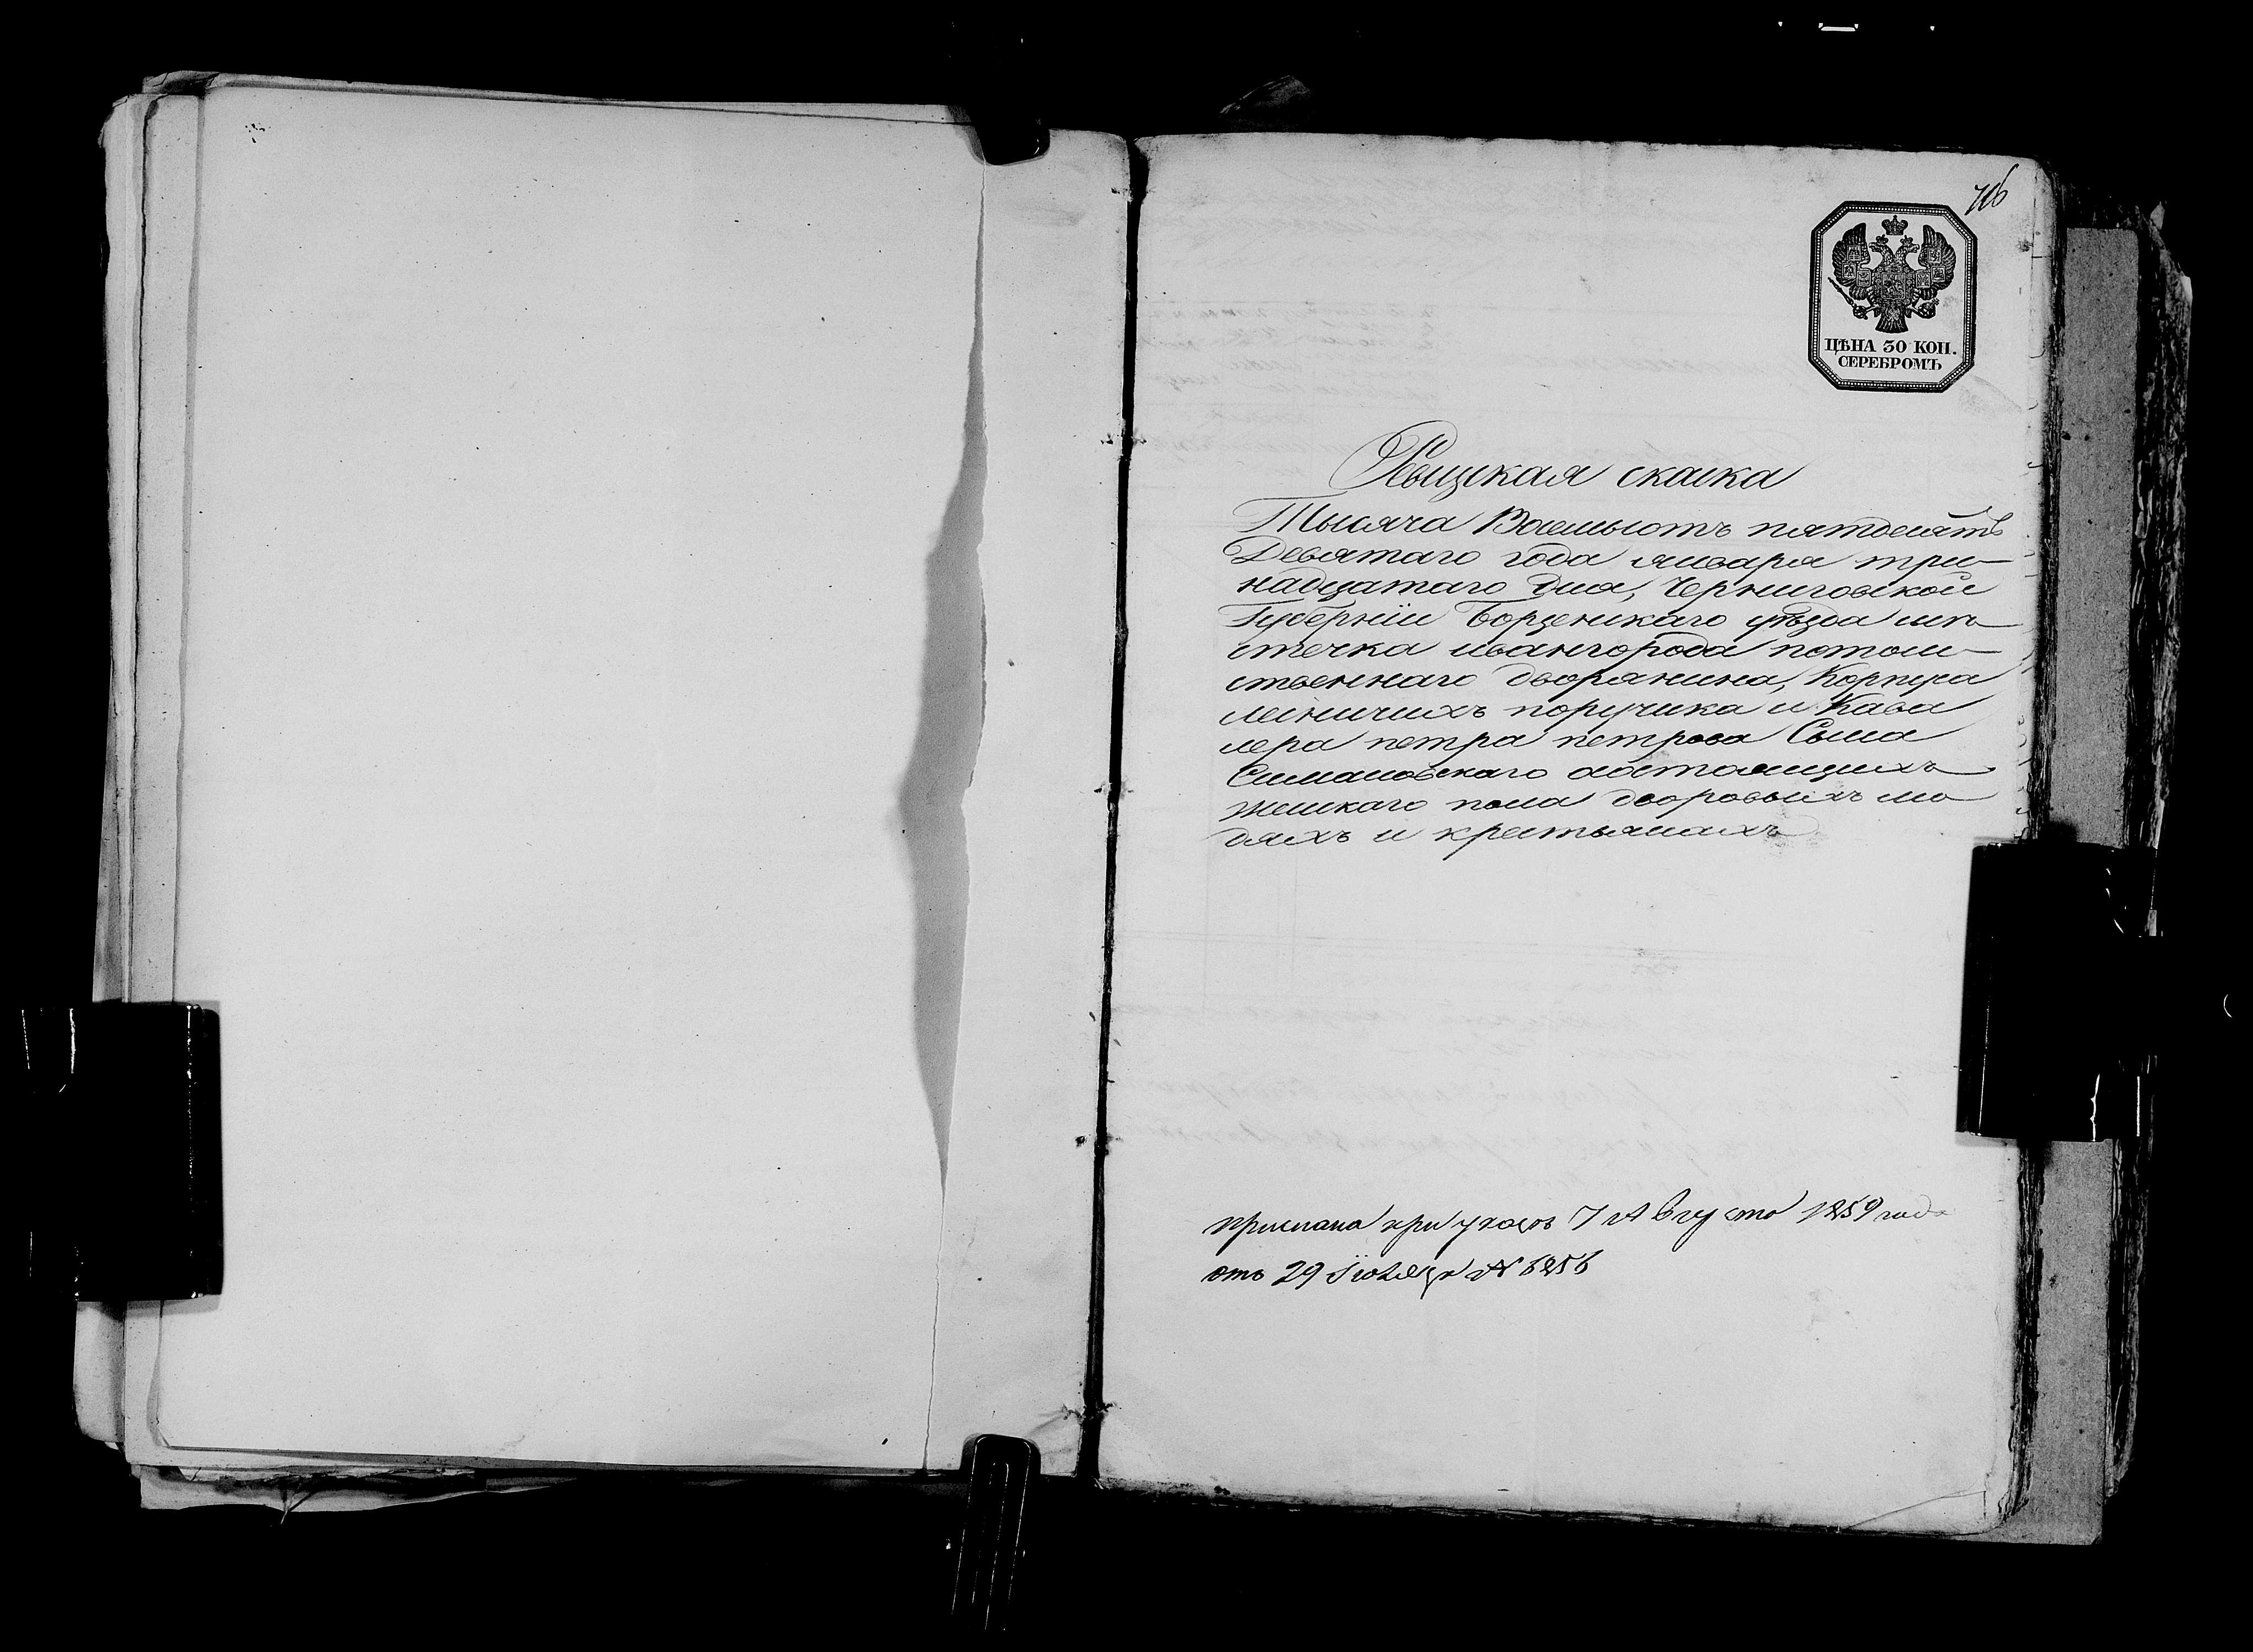 716
ЦѢНА 30 КОП.
СЕРЕБРОМЪ
Ревизская скаска
Тысяча Восемьсотъ пятдесятъ
Девятаго года января три-
надцатаго дня, Черниговской
Губерніи Борзенскаго уѣзда мѣ-
стечка ивангорода потом-
ственнаго дворянина, Корпуса
лесничихъ поручика и Кава
лера петра петрова Сына
Симановскаго состоящихъ
женскаго пола дворовыхъ лю-
дяхъ и крестьянахъ
прислана при указѣ 7 Августа 1859 года
отъ 29 Іюля № 6256